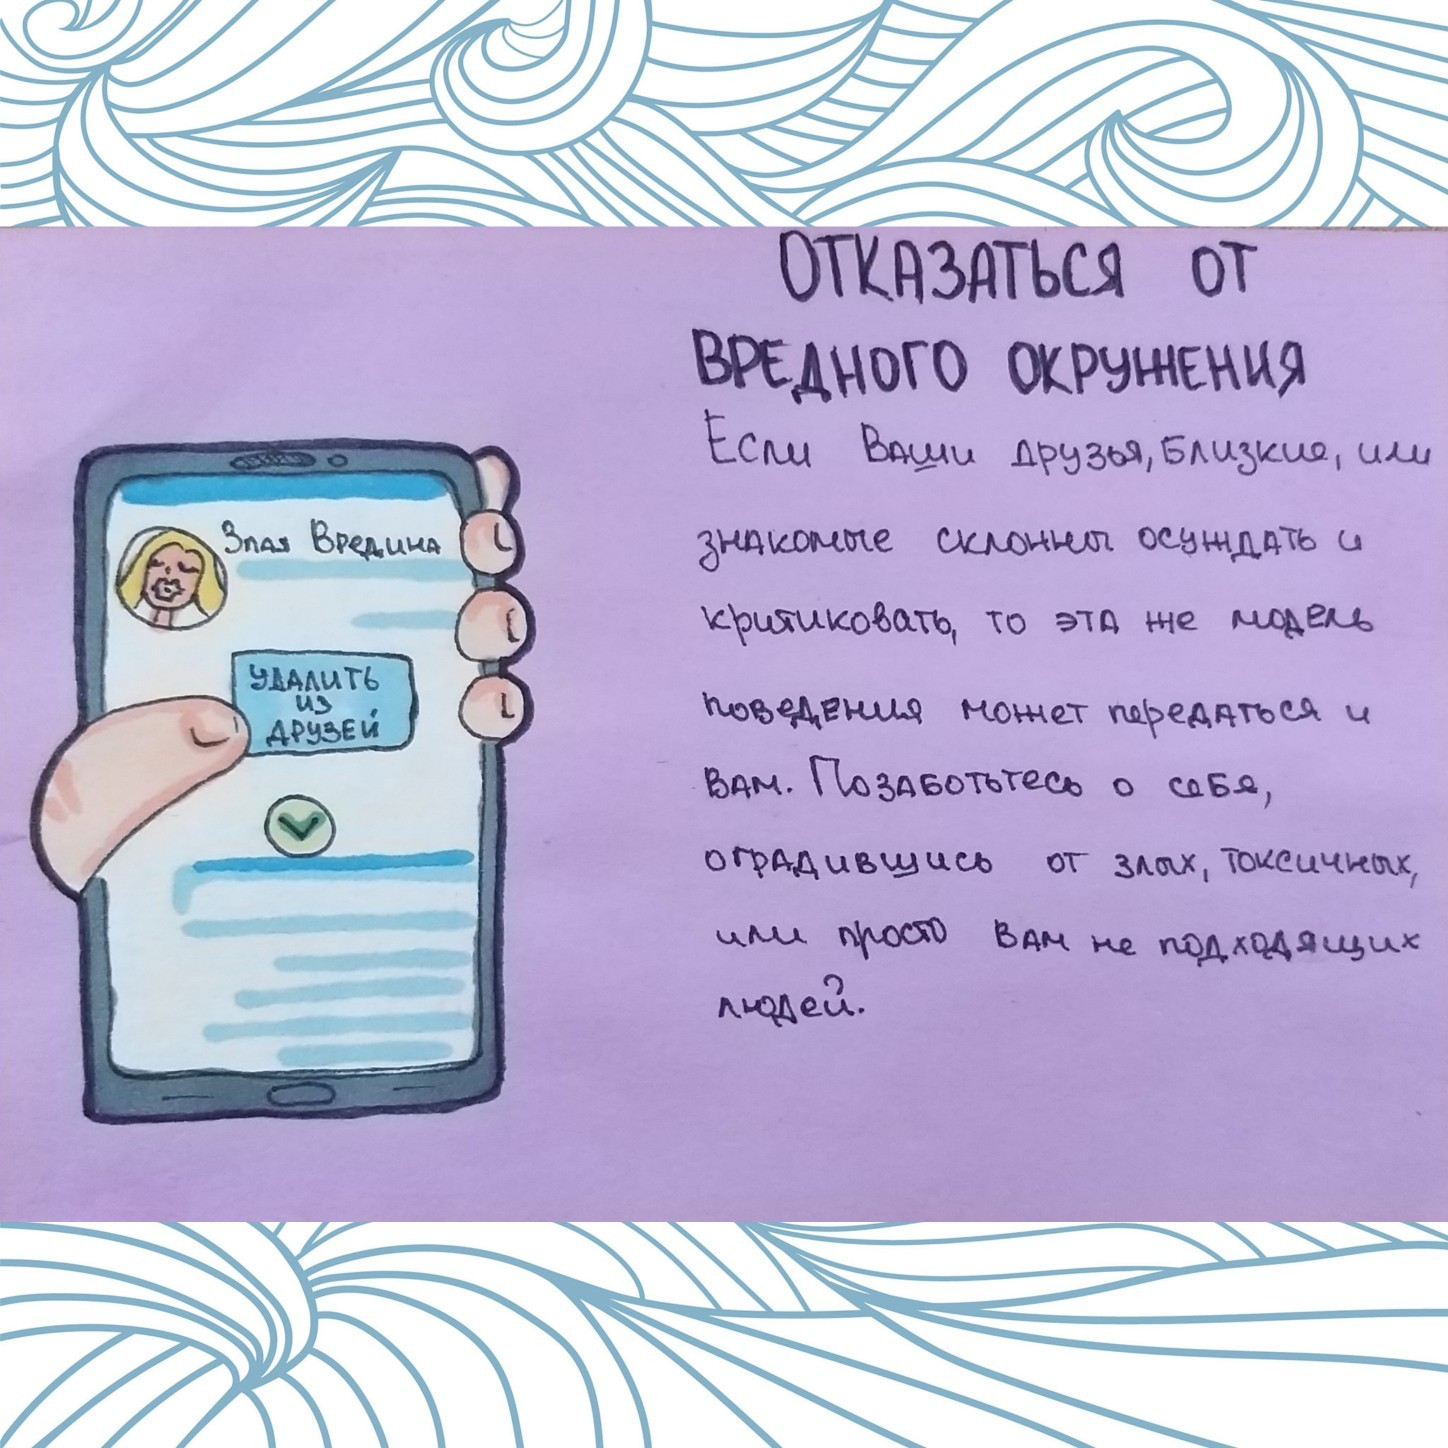 ОТКАЗАТЬСЯ ОТ
ВРЕДНОГО ОКРУЖЕНИЯ
Если Ваши друзья, близкие, или
знакомые склонны осуждать и
критиковать, то эта же модель
поведения может передаться и
вам. Позаботьтесь о себе,
оградившись от злых, токсичных,
или просто вам не подходящих
людей.
Злая Вредина
УДАЛИТЬ
ИЗ
ДРУЗЕЙ